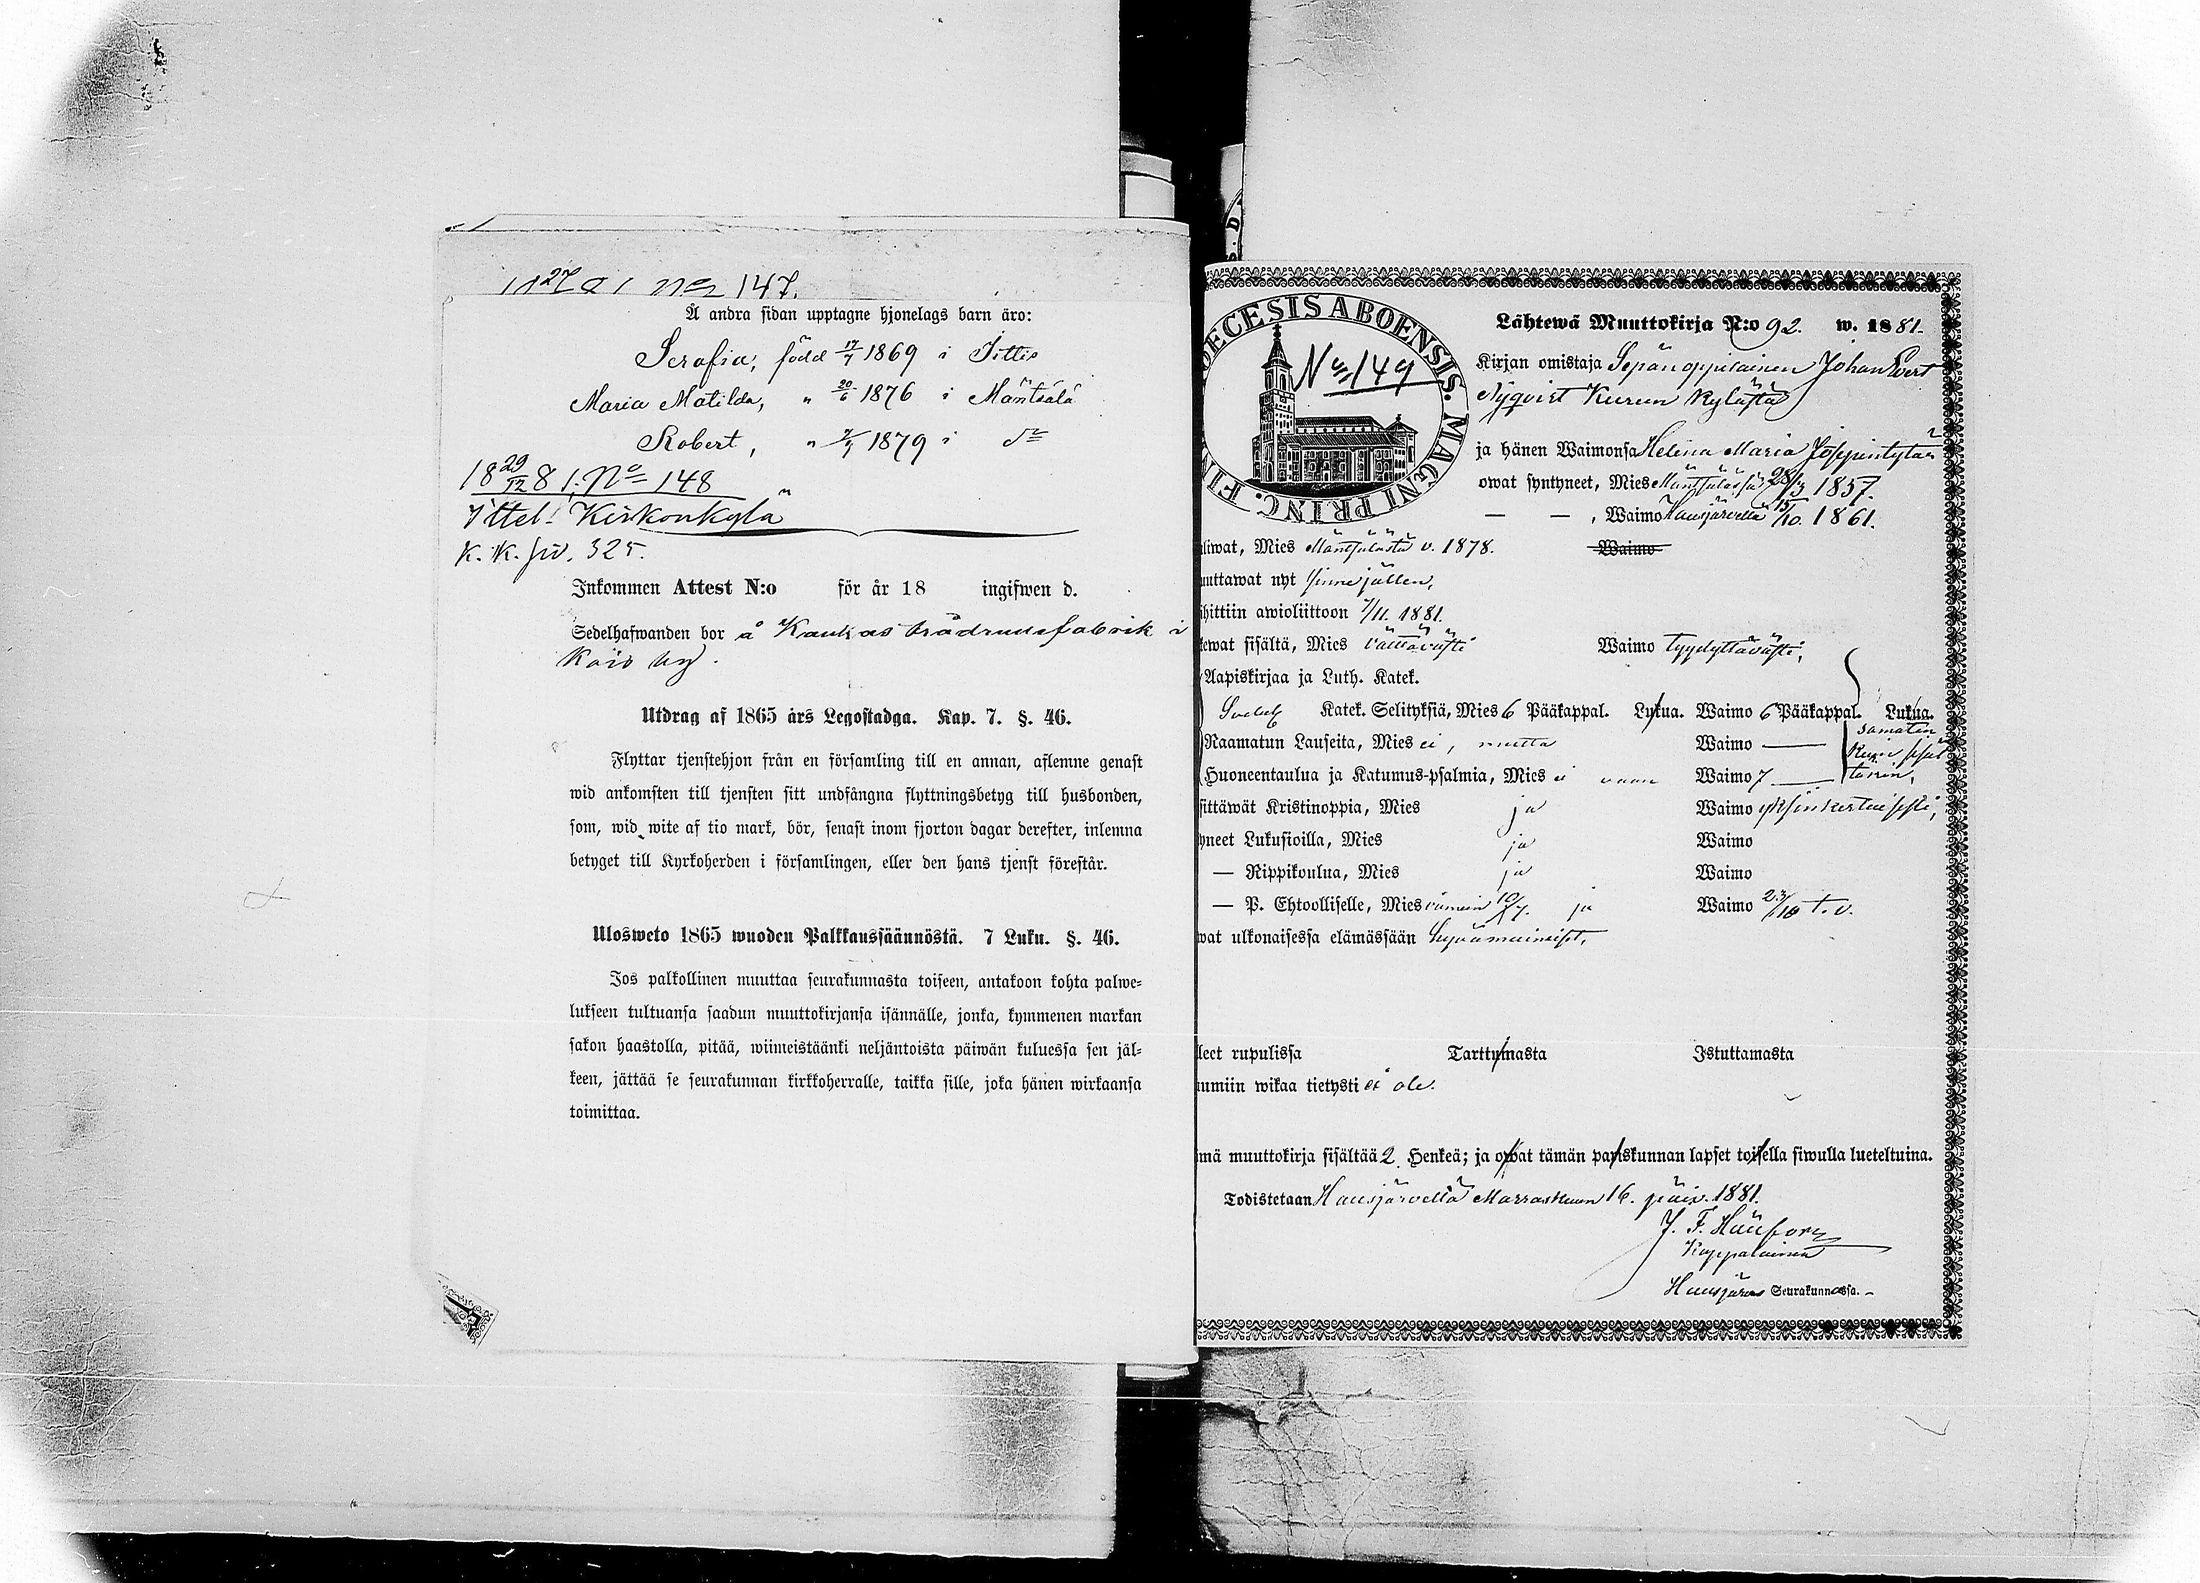 No 147.
Å andra sidan upptagne hjonelags barn äro:
Serafia, född 17/7 1869 i Sittis
Maria Matilda, " 20/6 1876 i Mäntsälä
Robert, " 1879 i do
18 29/12 81. No 148
Yttel. Kirkonkylä
K. K. siv. 325.
Inkommen Attest N:o för år 18 ingifwen d.
Sedelhafwanden bor å Kaukas trådrullsfabrik i
Utdrag af 1865 års Legostadga. Kap. 7. §. 46.
Flyttar tjenstehjon från en församling till en annan, aflemne genast
wid ankomsten till tjensten sitt undfångna flyttningsbetyg till husbonden,
som, wid wite af tio mark, bör, senast inom fjorton dagar derefter, inlemna
betyget till Kyrkoherden i församlingen, eller den hans tjenst förestår.
Ulosweto 1865 wuoden Palkkaussäännöstä. 7 Luku. §. 46.
Jos palkollinen muuttaa seurakunnasta toiseen, antakoon kohta palwe=
lukseen tultuansa saadun muuttokirjansa isännälle, jonka, kymmenen markan
sakon haastolla, pitää, wiimeistäänki neljäntoista päiwän kuluessa sen jäl=
keen, jättää se seurakunnan kirkkoherralle, taikka sille, joka hänen wirkaansa
toimittaa.
S. D.
DECESIS ABOENSIS. MAGNI PRINC. FIN
No 149
Lähtewä Muuttokirja N:o 92. w. 1881.
Kirjan omistaja Sepänoppilainen Johan Evert
Nyqvist Kurun kylästä
ja hänen Waimonsa Helena Maria Jöppintytär
owat syntyneet, Mies Mäntsälässä 28/3 1857.
— — , Waimo Hausjärvellä 15/10. 1861.
liwat, Mies Mäntsälästä v. 1878. Waimo
uuttawat nyt sinne jällen,
hittiin awioliittoon 7/11. 1881.
kewat sisältä, Mies välttävästi Waimo tyydyttävästi,
Aapiskirjaa ja Luth. Katek.
Svebel. Katek. Selityksiä, Mies 6 Pääkappal. Lukua. Waimo 6 Pääkappal. Lukua.
Raamatun Lauseita, Mies ei, mutta Waimo — samaten
Huoneentaulua ja Katumus-psalmia, Mies ei vaan Waimo 7 — kuin sisäl
tä
sittäwät Kristinoppia, Mies ja Waimo yksinkertaisesti,
yneet Lukusioilla, Mies ja Waimo
— Rippikoulua, Mies ja Waimo
— P. Ehtoolliselle, Mies viimein 10/7. ja Waimo 23/10 t. v.
wat ulkonaisessa elämässään hyvämaineiset.
leet rupulissa Tarttumasta Istuttamasta
umiin wikaa tietysti ei ole.
mä muuttokirja sisältää 2. Henkeä; ja owat tämän pariskunnan lapset toisella siwulla lueteltuina.
Todistetaan Hausjärvellä Marraskuun 16. päiv. 1881.
J. F. Hänfors
Kappalainen
Hausjärven Seurakunnassa.